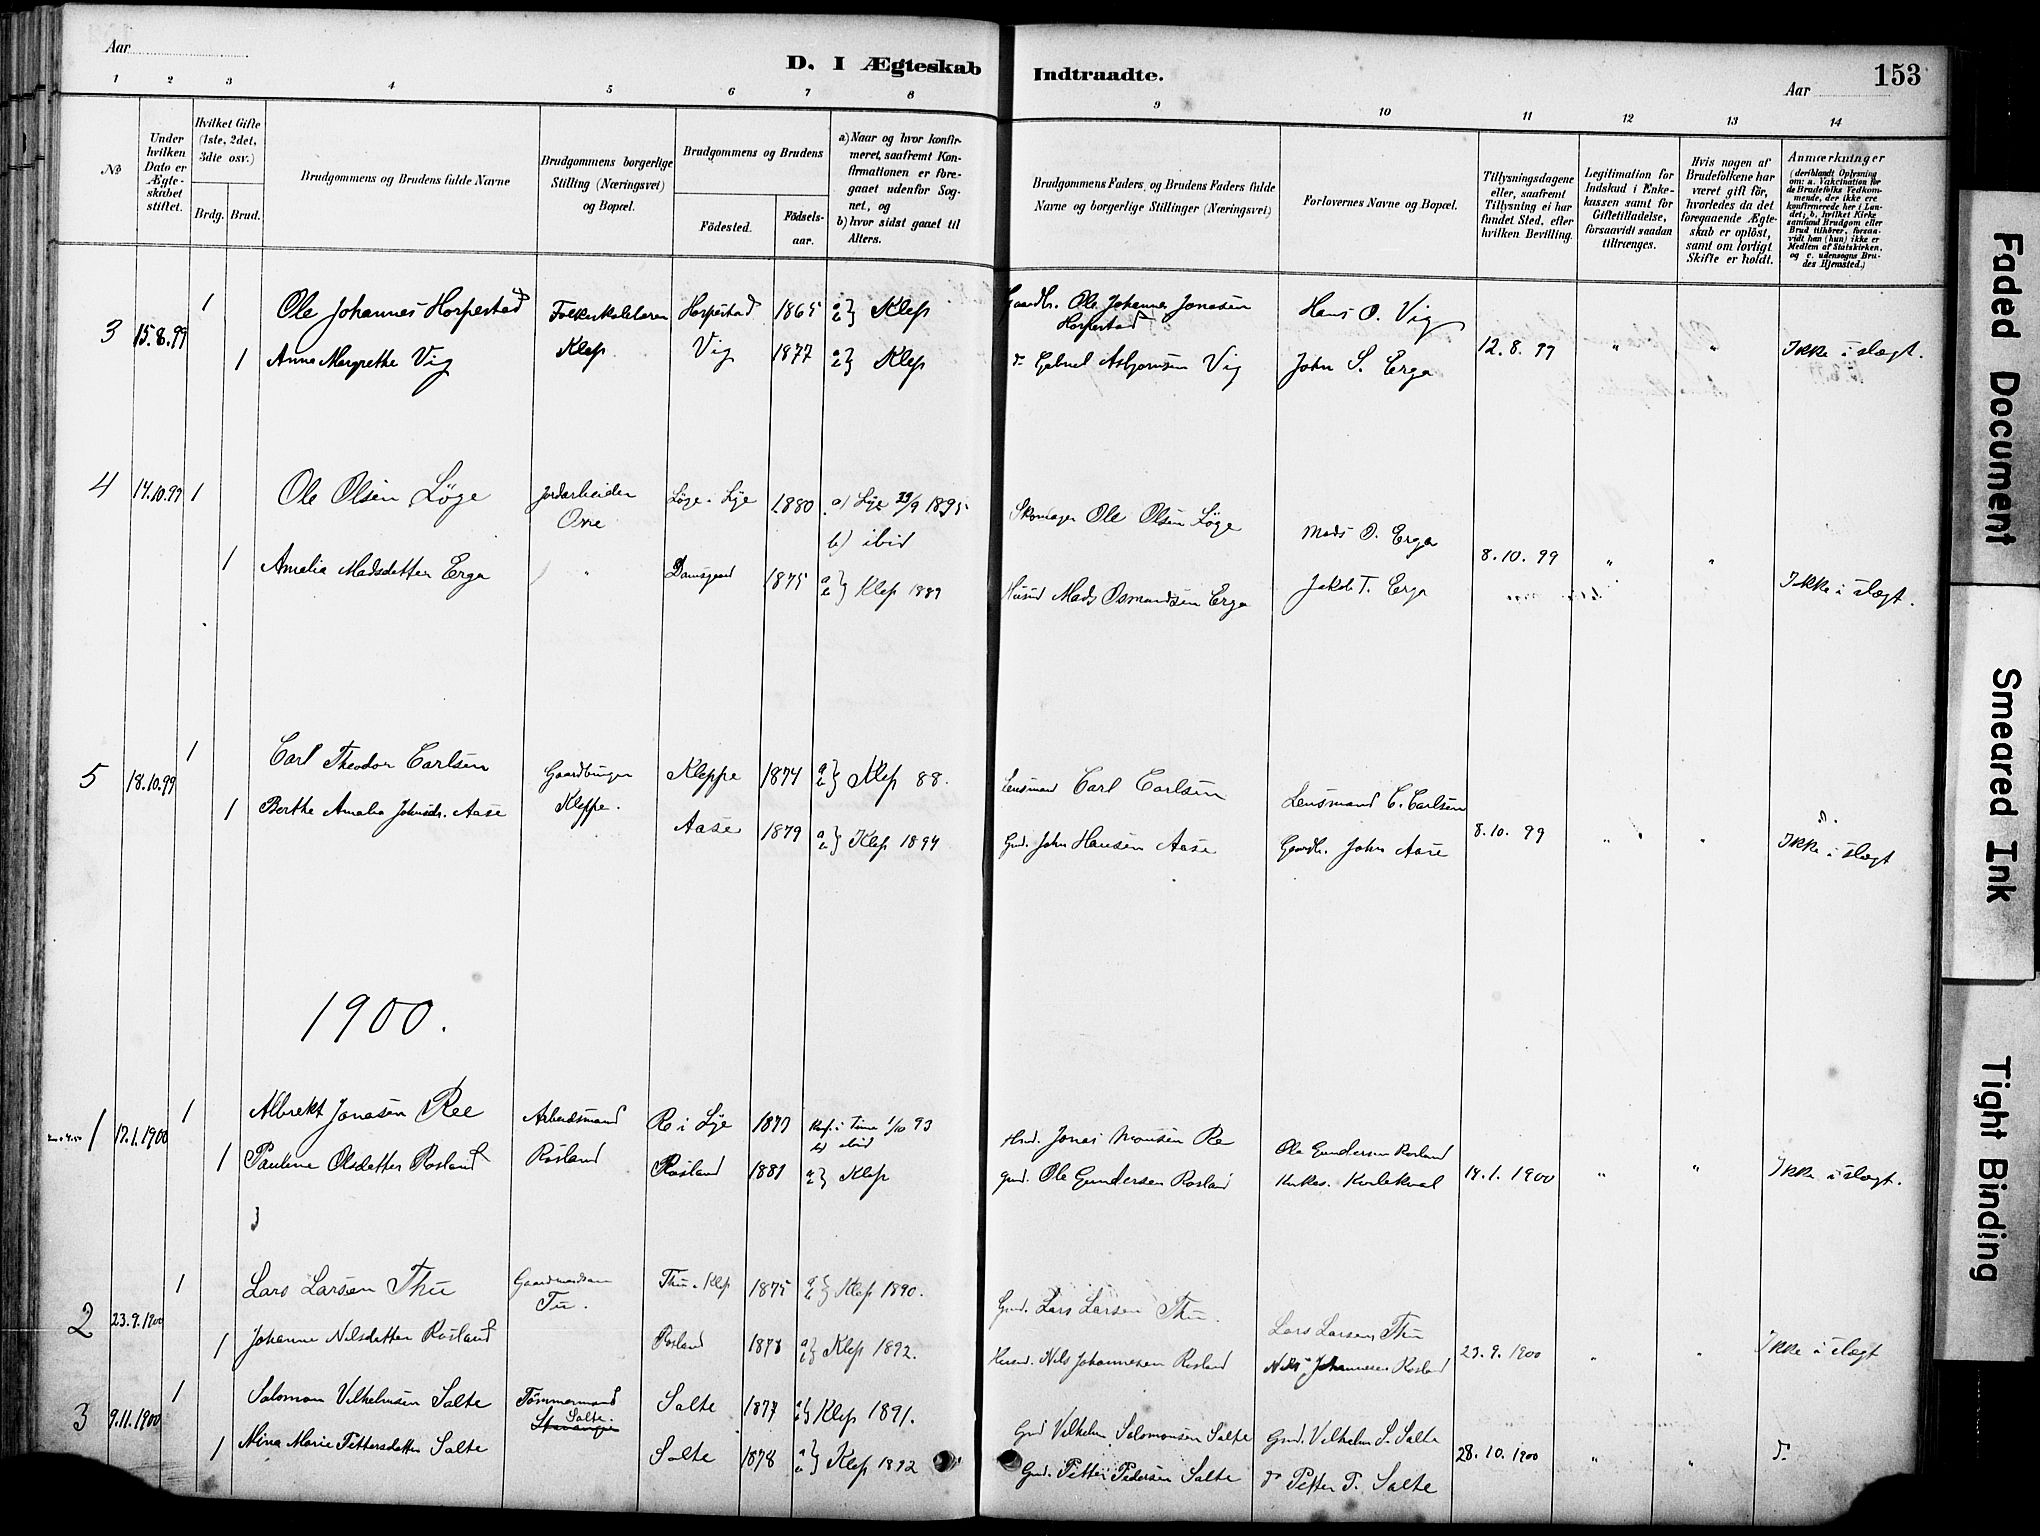 Aar
D. I Ægteskab Indtraadte.
Aar
153
1 2 3 4 5 6 7 8 9 10 11 12 13 14
No
Under hvilken Dato er Ægteskabet stiftet.
Hvilket Gifte (1ste, 2det, 3dte osv.)
Brdg. Brud.
Brudgommens og Brudens fulde Navne
Brudgommens borgerlige Stilling (Næringsvei) og Bopæl.
Brudgommens og Brudens
Födested.
Födsels-aar.
a) Naar og hvor konfirmeret, saafremt Konfirmationen er foregaaet udenfor Sognet, og
b) hvor sidst gaaet til Alters.
Brudgommens Faders, og Brudens Faders fulde Navne og borgerlige Stillinger (Næringsvei)
Forlovernes Navne og Bopæl.
Tillysningsdagene eller, saafremt Tillysning ei har fundet Sted, efter hvilken Bevilling.
Legitimation for Indskud i Enkekassen samt for Giftetilladelse, forsaavidt saadan tiltrænges.
Hvis nogen af Brudefolkene har været gift för, hvorledes da det foregaaende Ægteskab er oplöst, samt om lovligt Skifte er holdt.
Anmærkninger (deriblandt Oplysning om: a. Vakcination for de Brudefolks Vedkommende, der ikke ere konfirmerede her i Landet; b. hvilket Kirkesamfund Brudgom eller Brud tilhörer, forsaavidt han (hun) ikke er Medlem af Statskirken, og c. udensogns Brudes Hjemsted.)
3 15.8.99 1 Ole Johannes Horpestad Folkeskolelærer Horpestad 1865 a b} Klep Gaardbr. Ole Johannes Jonasen Horpestad Hans O. Vig
1 Anna Margrethe Vig Klep. Vig 1877 a b} Klep Gabriel Asbjornsen Vig John S. Erga 12.8.99 " " Ikke i slægt.
4 14.10.99 1 Ole Olsen Löge Jordarbeider Orre Löge. Lye 1880 a) Lye 29/9 1895 b) ibid Skomager Ole Olsen Löge Mads O. Erga
1 Amalia Madsdatter Erga " Damsgaard 1875 a b} Klep 1889 Husmd Mads Osmundsen Erga Jakob T. Erga 8.10.99 " " Ikke i slægt.
5 18.10.99 1 Carl Theodor Carlsen Gaardbruger Kleppe 1874 a b} Klep 88. Lensmand Carl Carlsen Lensmand C. Carlsen
1 Berthe Amalia Johnsdr. Aase Kleppe. Aase 1879 a b} Klep 1894 Gmd. John Hansen Aase Gaardb. John Aase 8.10.99 " " Ikke i slægt
1900.
1 17.1.1900 1 Albrekt Jonasen Ree Arbeidsmand Re i Lye 1877 Konf. i Time 1/10 93 b) ibid Hsmd. Jonas Monsen Re Ole Gundersen Rosland
1 Pauline Olsdatter Rosland Rosland Rosland 1881 a b} Klep gmd. Ole Gundersen Rosland Kirkes. Kverlekval 14.1.1900 " " Ikke i slægt.
2 23.9.1900 1 Lars Larsen Thu Gaardmandssøn Tu. Thu. Klep 1875 a b} Klep 1890. Gmd. Lars Larsen Thu. Lars Larsen Thu
1 Johanne Nilsdatter Rosland Rosland 1877 a b} Klep 1892. Husmd. Nils Johannesen Rosland Nils Johannesen Rosland 23.9.1900 " " Ikke i slægt
3 9.11.1900 1 Salomon Vilhelmsen Salte Tömmermand Salte. Stavanger Salte 1877 a b} Klep 1891. Gmd Vilhelm Salomonsen Salte Gmd. Vilhelm S. Salte
1 Mina Marie Pettersdatter Salte Salte 1878 a b} Klep 1892 Gmd. Petter Pedersen Salte do Petter P. Salte 28.10.1900 " " do.
Faded Document
Smeared Ink
Tight Binding